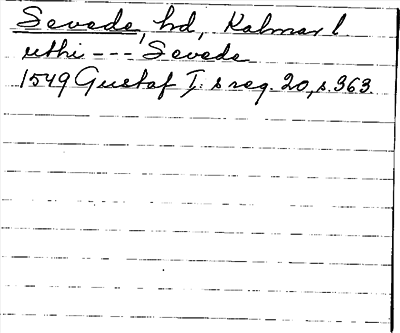 Sevede, hd, Kalmar l
uthi --- Sevede
1549 Gustaf I:s reg. 20, s. 363.